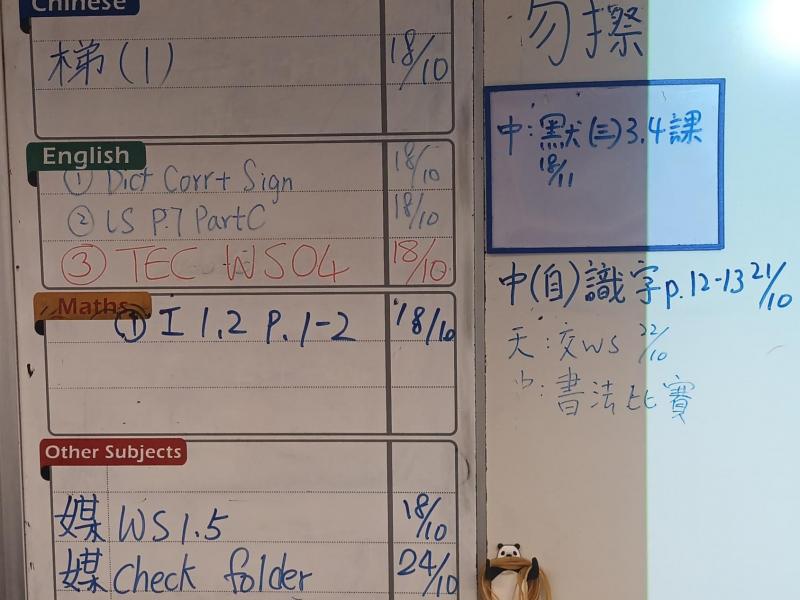 Chinese
梯(1) 18/10
English
① Dict Corr+ Sign 18/10
② LS P.7 Part C 18/10
③ TEC WS04 18/10
Maths
① I 1.2 P.1-2 18/10
Other Subjects
媒 WS1.5 18/10
媒 Check folder 24/10
勿擦
中:默(三)3.4課
18/11
中(自)識字p.12-13 21/10
天:交WS 22/10
中:書法比賽